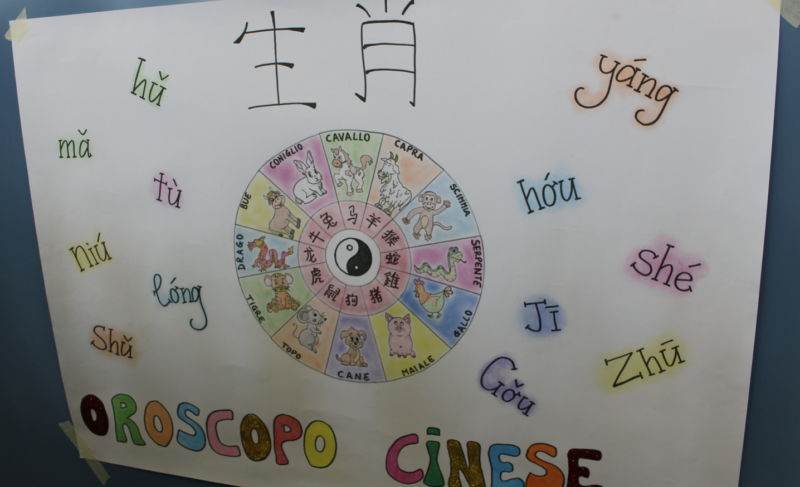 生肖
hǔ
yáng
mǎ
tù
hóu
niú
shé
lóng
Jī
Shǔ
Zhū
Gǒu
CAVALLO
CAPRA
SCIMMIA
SERPENTE
GALLO
MAIALE
CANE
TOPO
TIGRE
DRAGO
BUE
CONIGLIO
马
羊
猴
蛇
雞
猪
狗
鼠
虎
龙
牛
兔
OROSCOPO CINESE